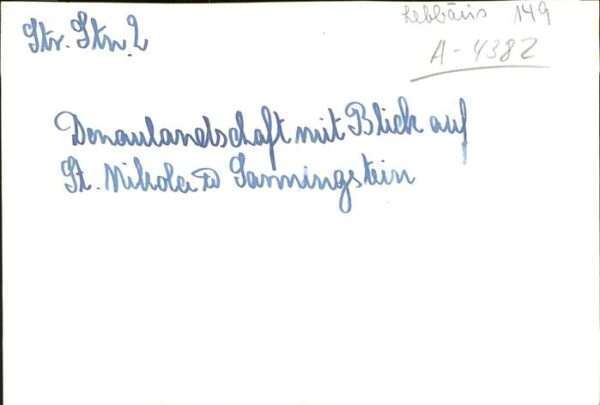 Str. Stn. 2
149
A-4382
Donaulandschaft mit Blick auf
St. Nikola Sarmingstein